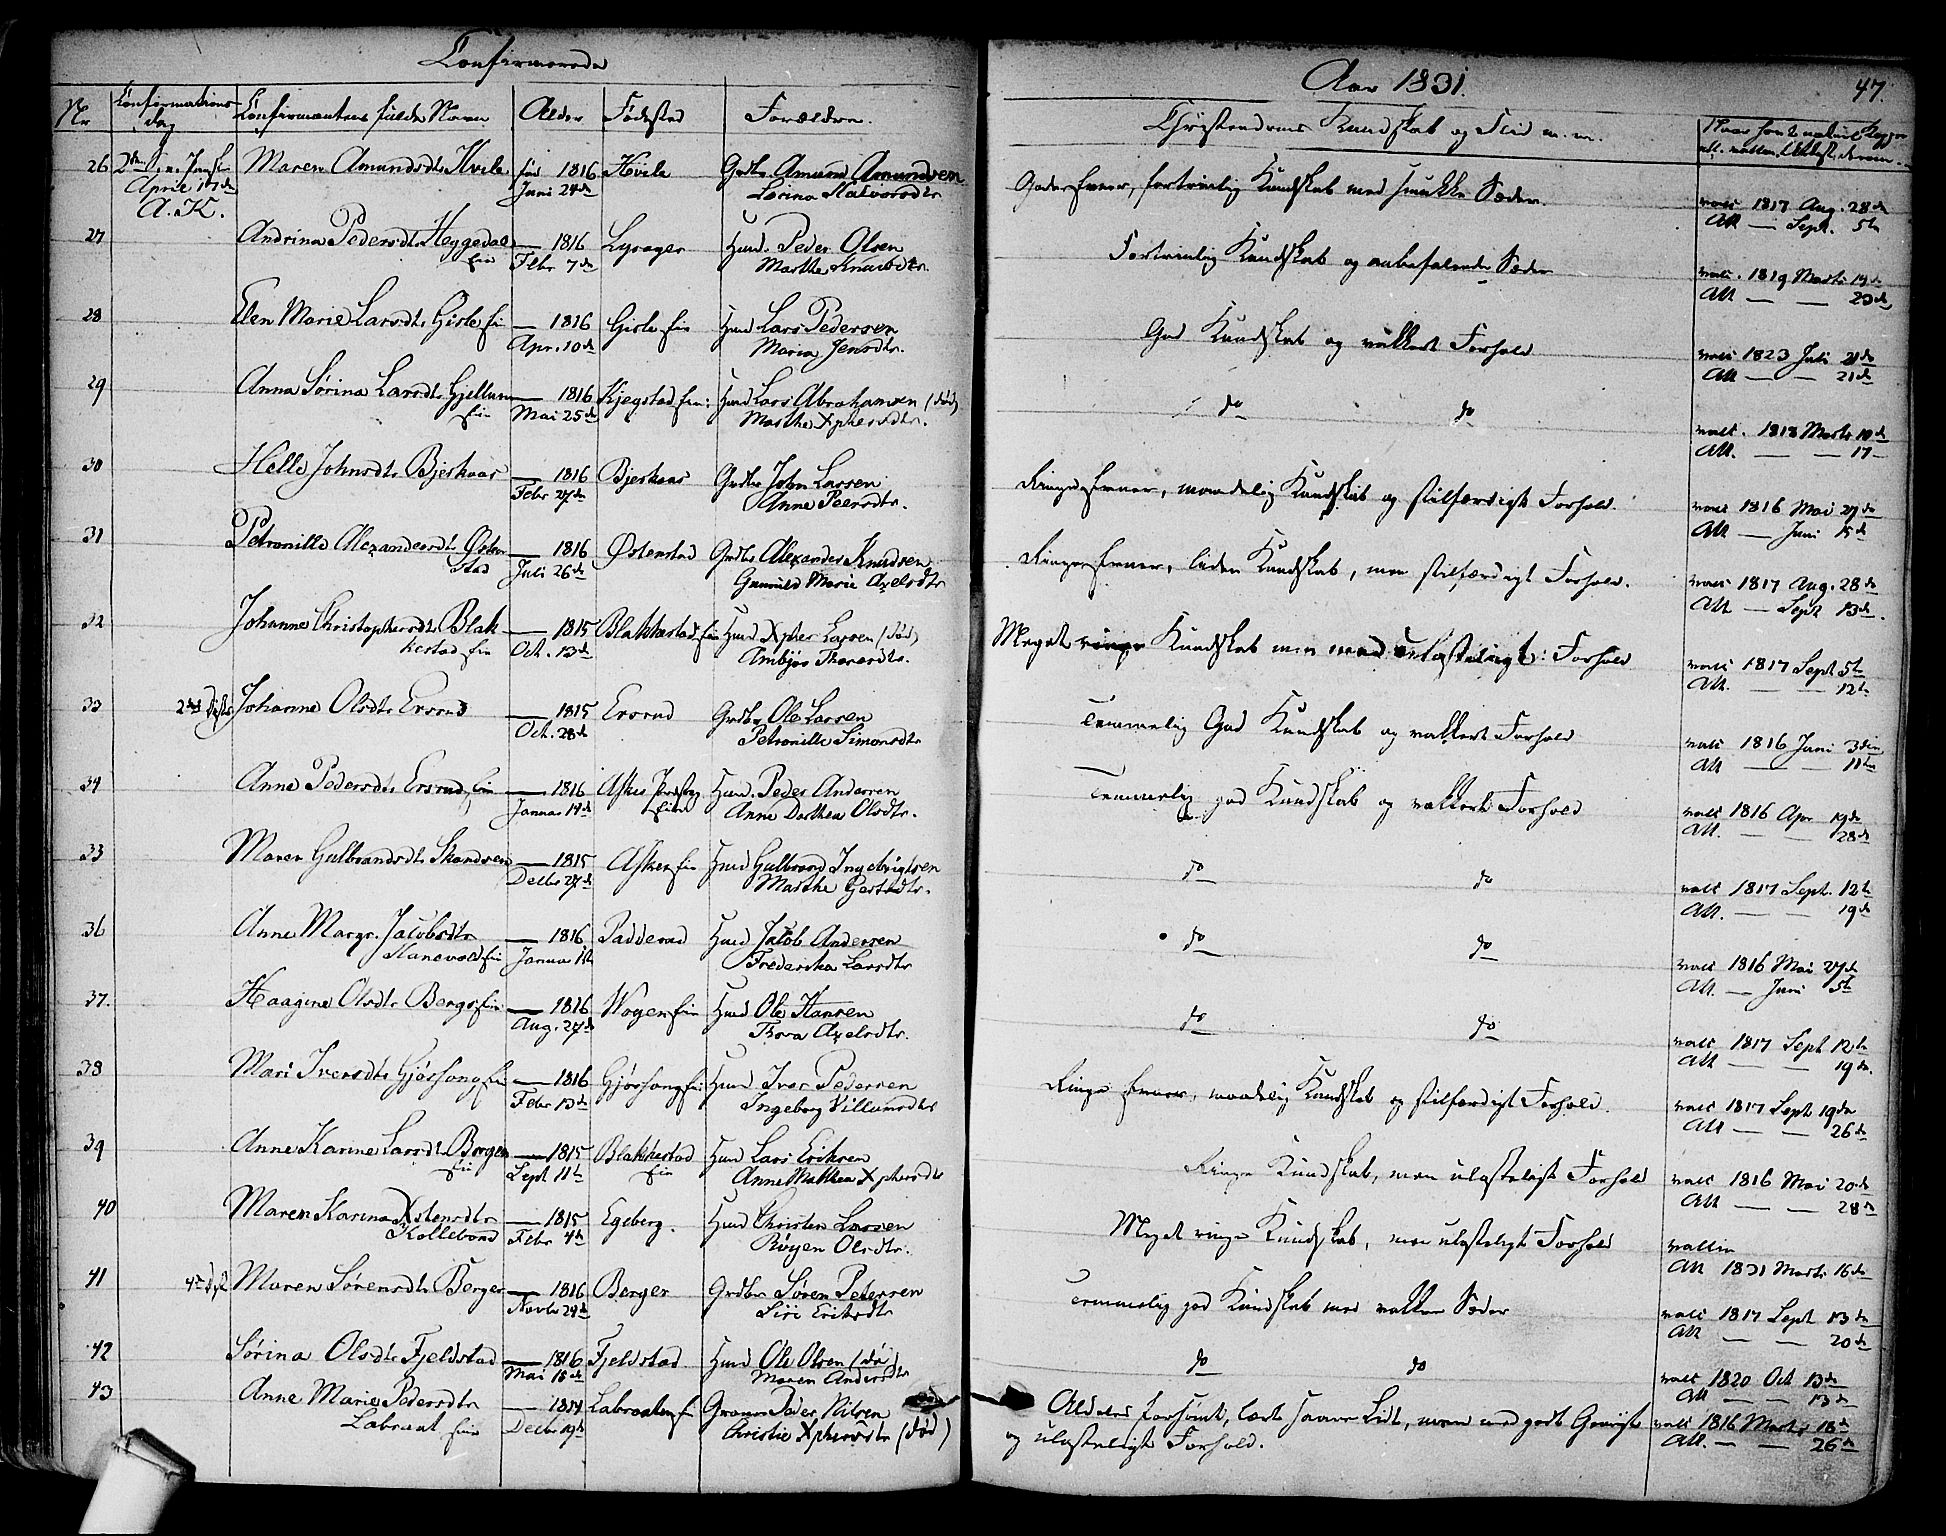 Confirmerede
Aar 1831.
47.
Nr
Confirmations dag
Confirmantens fulde Navn
Alder
Fødested
Forældre.
Christendoms Kundskab og Flid m. m.
26 April 17de A. K. Maren Amundsdtr Hvile fød 1816 Juni 24de Hvile Grdbr Amund Amundsen
Lorina Halvorsdtr
Gode Evner, fortrinlig Kundskab med smukke Sæder. vacc 1817 Aug. 28de
Att — Sept. 5te
27 Andrina Pedersdtr Heggedal eie — 1816 Febr 7de Lysager Huusd. Peder Olsen
Marthe Knudsdtr.
Fortrinlig Kundskab og anbefalende Sæder vacc. 1819 Marts 19de
Att — — 20de
28 Elen Marie Larsdtr Gisle eie — 1816 Apr. 10de Gisle eie Huusd Lars Pedersen
Maria Jensdtr.
God Kundskab og vakkert Forhold vacc 1823 Juli 21de
Att — — 21de
29 Anna Sørina Larsdtr Gjellum eie — 1816 Mai 25de Kjegstad eie: Huusd Lars Abrahamsen (død)
Marthe Xphersdtr.
do do vacc. 1818 Marts 10de
Att. — — 17 —
30 Helle Johnsdtr Bjerkaas — 1816 Febr 27de Bjerkaas Grdbr John Larsen
Anne Peersdtr.
Ringe Evner, maadelig Kundskab og stilfærdigt Forhold. vacc 1816 Mai 27de
Att — Juni 15de
31 Petronille Alexandersdtr Østenstad — 1816 Juli 26de Østenstad Grdbr Alexander Knudsen
Gunnild Marie Axelsdtr
Ringe Evner, liden Kundskab, men stilfærdigt Forhold. vacc 1817 Aug. 28de
Att — Sept 13de.
32 Johanne Christophersdtr Blakkestad eie — 1815 Oct. 13de Blakkestad eie Huusd Xpher Larsen (død)
Ambjør Thoresdtr.
Meget ringe Kundskab men med ulasteligt Forhold vacc 1817 Sept 5te
Att. — — 12te
33 Johanne Olsdtr Ersrud — 1815 Oct. 28de Ersrud Grdbr Ole Larsen
Petronille Simonsdtr
Temmelig God Kundskab og vakkert Forhold vacc 1816 Juni 3die
Att — — 11te
34 Anne Pedersdtr Ersrud eie — 1816 Januar 14de Huusd. Peder Andersen
Anne Dorthea Olsdtr.
Temmelig god Kundskab og vakkert Forhold vacc 1816 Apr 19de
Att. — 28de
35 Maren Gulbrandsdtr Skandsen — 1815 Decbr 27de Asker eie Huusd Gulbrand Ingebrigtsen
Marthe Gersdtr.
do do vacc 1817 Sept. 12te
Att. — — 19de
36 Anne Margr. Jacobsdtr Hanevold eie — 1816 Januar Padderud Huusd Jacob Andersen
Frederikka Larsdtr
do do vacc 1816 Mai 27de
Att. — Juni 5te
37. Haagine Olsdtr Berger eie — 1816 Aug. 27de Wogen eie Huusd Ole Hansen
Thora Axelsdtr.
do do vacc 1817 Sept 12te
Att — — 19de.
38 Mari Iversdtr Gjøssong eie — 1816 Febr 13de Gjøssong eie Huusd Iver Pedersen
Ingeborg Villumsdtr
Ringe Evner, maadelig Kundskab og stilfærdigt Forhold. vacc 1817 Sept 19de
Att — — 26de
39 Anne Karine Larsdtr Berger eie — 1815 Sept 11te Blakkestad eie Huusd Lars Eriksen
Anne Mathea Xphersdtr
Ringe Kundskab, men ulasteligt Forhold vacc 1816 Mai 20de
Att — — 28de
40 Maren Karina Xstensdtr Kollebond — 1815 Febr 4de Egeberg. Huusd Christen Larsen
Røyen Olsdtr.
Meget ringe Kundskab, men ulasteligt Forhold
Att 1831 Marts 16de
41 Maren Sørensdtr Berger — 1816 Novbr 29de Berger Grdbr Søren Petersen
Siri Eriksdtr
Temmelig god Kundskab med vakkre Sæder vacc 1817 Sept 13de
Att — — 20de
42 Sørina Olsdtr Fjeldstad — 1816 Mai 18de Fjeldstad Huusd Ole Olsen (død)
Maren Andersdtr
do do vacc 1820 Oct 13de
Att — — 13de
43 Anne Marie Pedersdtr Labraat eie — 1814 Decbr 19de Labraaten eie Peder Nilsen
Christie Xphersdtr (død)
Alders forsømt, lært saare Lidt, men med godt
og ulasteligt Forhold. vacc 1816 Marts 18de
Att. — — 26de